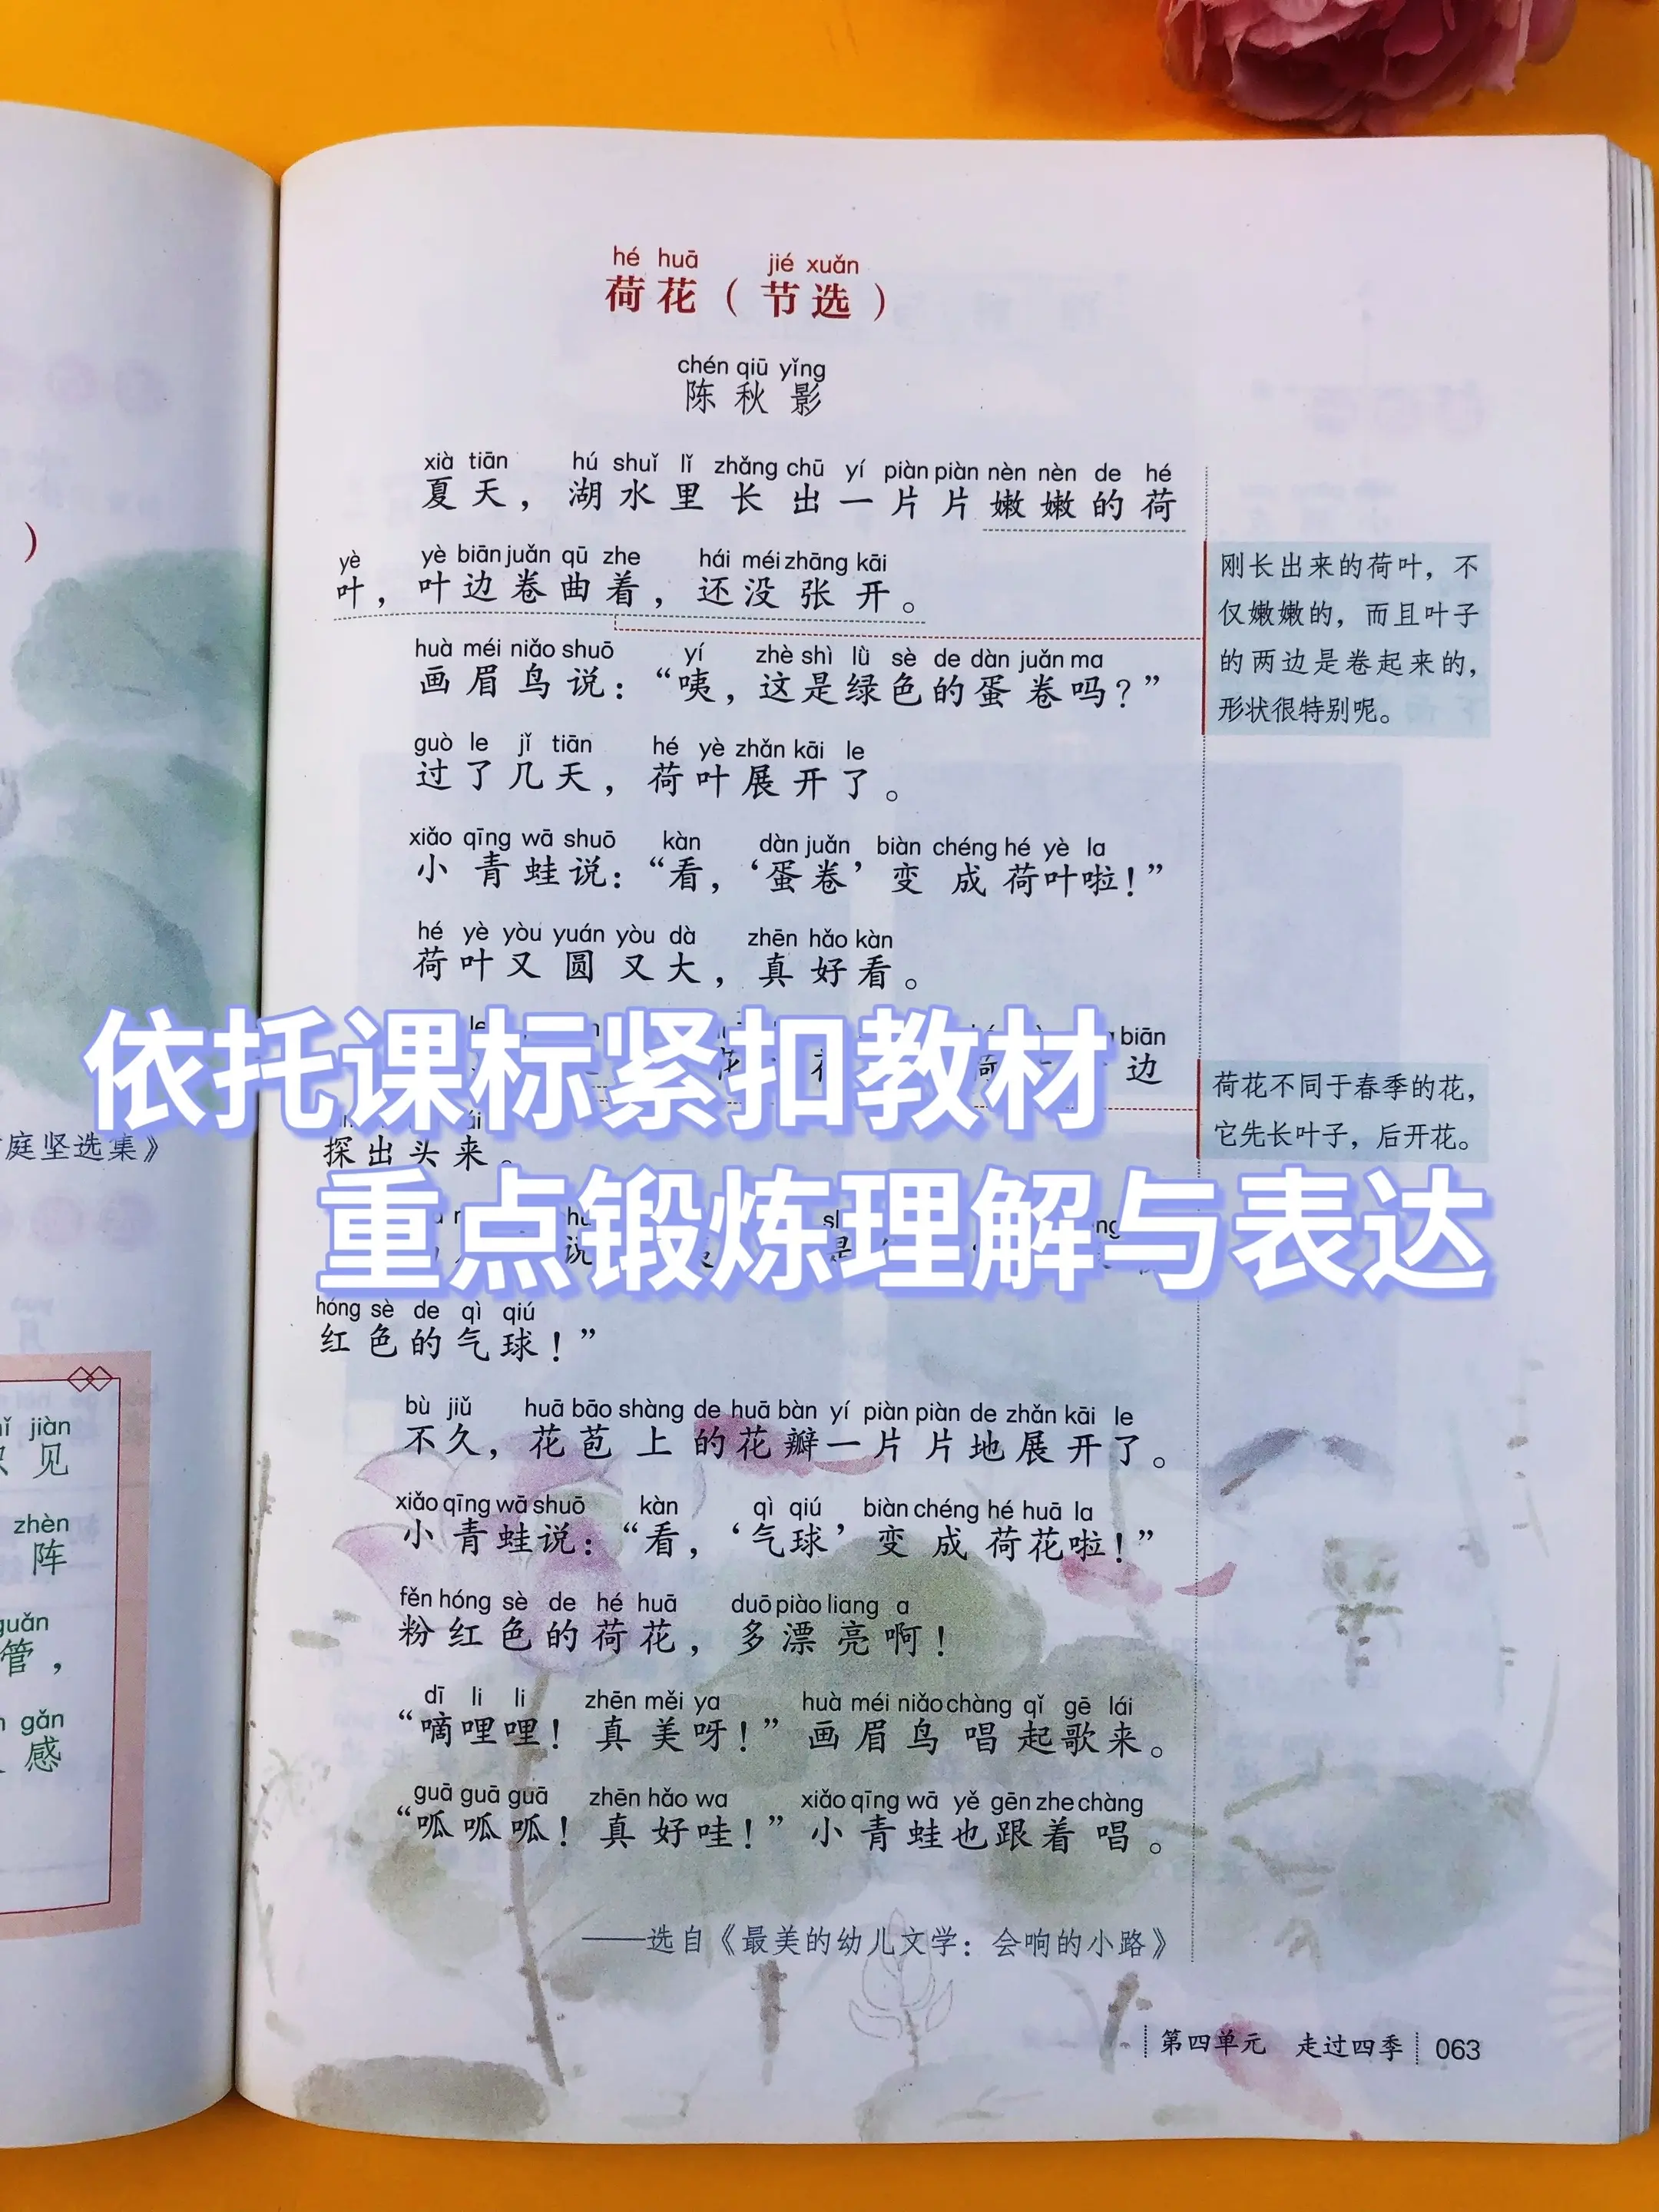 hé huā jié xuǎn
荷花（节选）
chén qiū yǐng
陈秋影
xià tiān hú shuǐ lǐ zhǎng chū yí piàn piàn nèn nèn de hé
夏天，湖水里长出一片片嫩嫩的荷
yè yè biān juǎn qū zhe hái méi zhāng kāi
叶，叶边卷曲着，还没张开。
刚长出来的荷叶，不
仅嫩嫩的，而且叶子
的两边是卷起来的，
形状很特别呢。
huà méi niǎo shuō yí zhè shì lǜ sè de dàn juǎn ma
画眉鸟说：“咦，这是绿色的蛋卷吗？”
guò le jǐ tiān hé yè zhǎn kāi le
过了几天，荷叶展开了。
xiǎo qīng wā shuō kàn dàn juǎn biàn chéng hé yè la
小青蛙说：“看，‘蛋卷’变成荷叶啦！”
hé yè yòu yuán yòu dà zhēn hǎo kàn
荷叶又圆又大，真好看。
依托课标紧扣教材
biān
边
荷花不同于春季的花，
它先长叶子，后开花。
探出头来。
重点锻炼理解与表达
说
是
hóng sè de qì qiú
红色的气球！”
bù jiǔ huā bāo shàng de huā bàn yí piàn piàn de zhǎn kāi le
不久，花苞上的花瓣一片片地展开了。
xiǎo qīng wā shuō kàn qì qiú biàn chéng hé huā la
小青蛙说：“看，‘气球’变成荷花啦！”
fěn hóng sè de hé huā duō piào liang a
粉红色的荷花，多漂亮啊！
dī li li zhēn měi ya huà méi niǎo chàng qǐ gē lái
“嘀哩哩！真美呀！”画眉鸟唱起歌来。
guā guā guā zhēn hǎo wa xiǎo qīng wā yě gēn zhe chàng
“呱呱呱！真好哇！”小青蛙也跟着唱。
——选自《最美的幼儿文学：会响的小路》
第四单元 走过四季 063
）
庭坚选集》
jiàn
见
zhèn
阵
guǎn
管，
gǎn
感